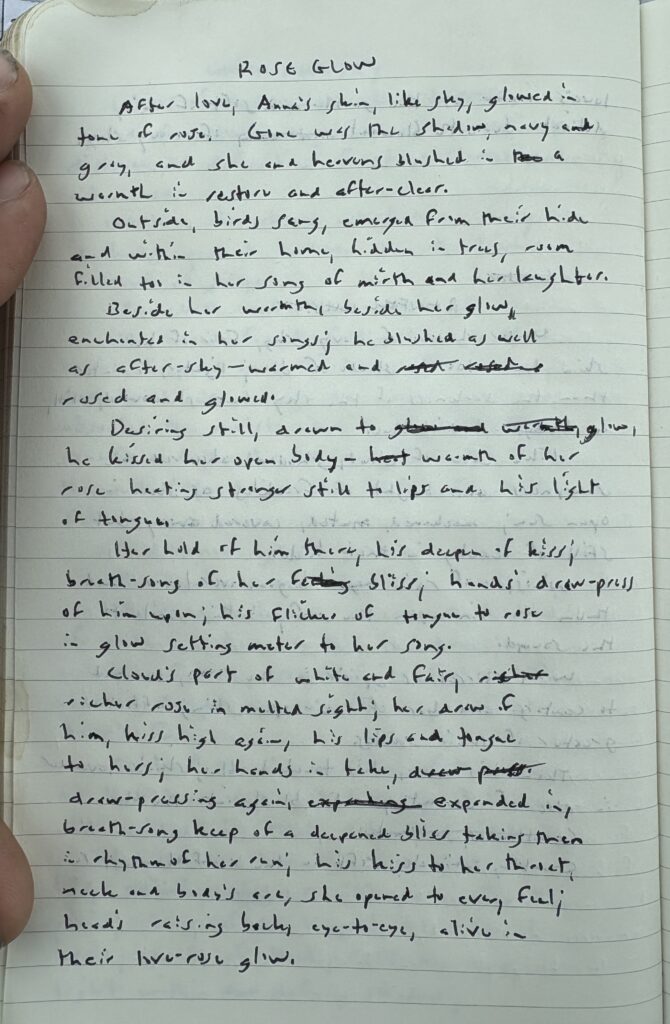 ROSE GLOW
After love, Anna's skin, like sky, glowed in
tone of rose. Gone was the shadow, navy and
gray, and she and heavens blushed in a
warmth in restore and after-clear.
Outside, birds sang, emerged from their hide
and within their home, hidden in trees, room
filled too in her song of mirth and her laughter.
Beside her warmth, beside her glow,
enchanted in her songs; he blushed as well
as after-sky—warmed and
rosed and glowed.
Desiring still, drawn to glow,
he kissed her open body— warmth of her
rose heating stronger still to lips and his light
of tongue.
Her hold of him there, his deepen of kiss;
breath-song of her bliss; hands' draw-press
of him upon; his flicker of tongue to rose
in glow setting meter to her song.
Cloud's part of white and fair,
richer rose in melted sight; her draw of
him, kiss high again, his lips and tongue
to hers; her hands in take,
draw-pressing again, expanded in,
breath-song keep of a deepened bliss taking them
in rhythm of her run; his kiss to her throat,
neck and body's arc, she opened to every feel;
head's raising back, eye-to-eye, alive in
their love-rose glow.